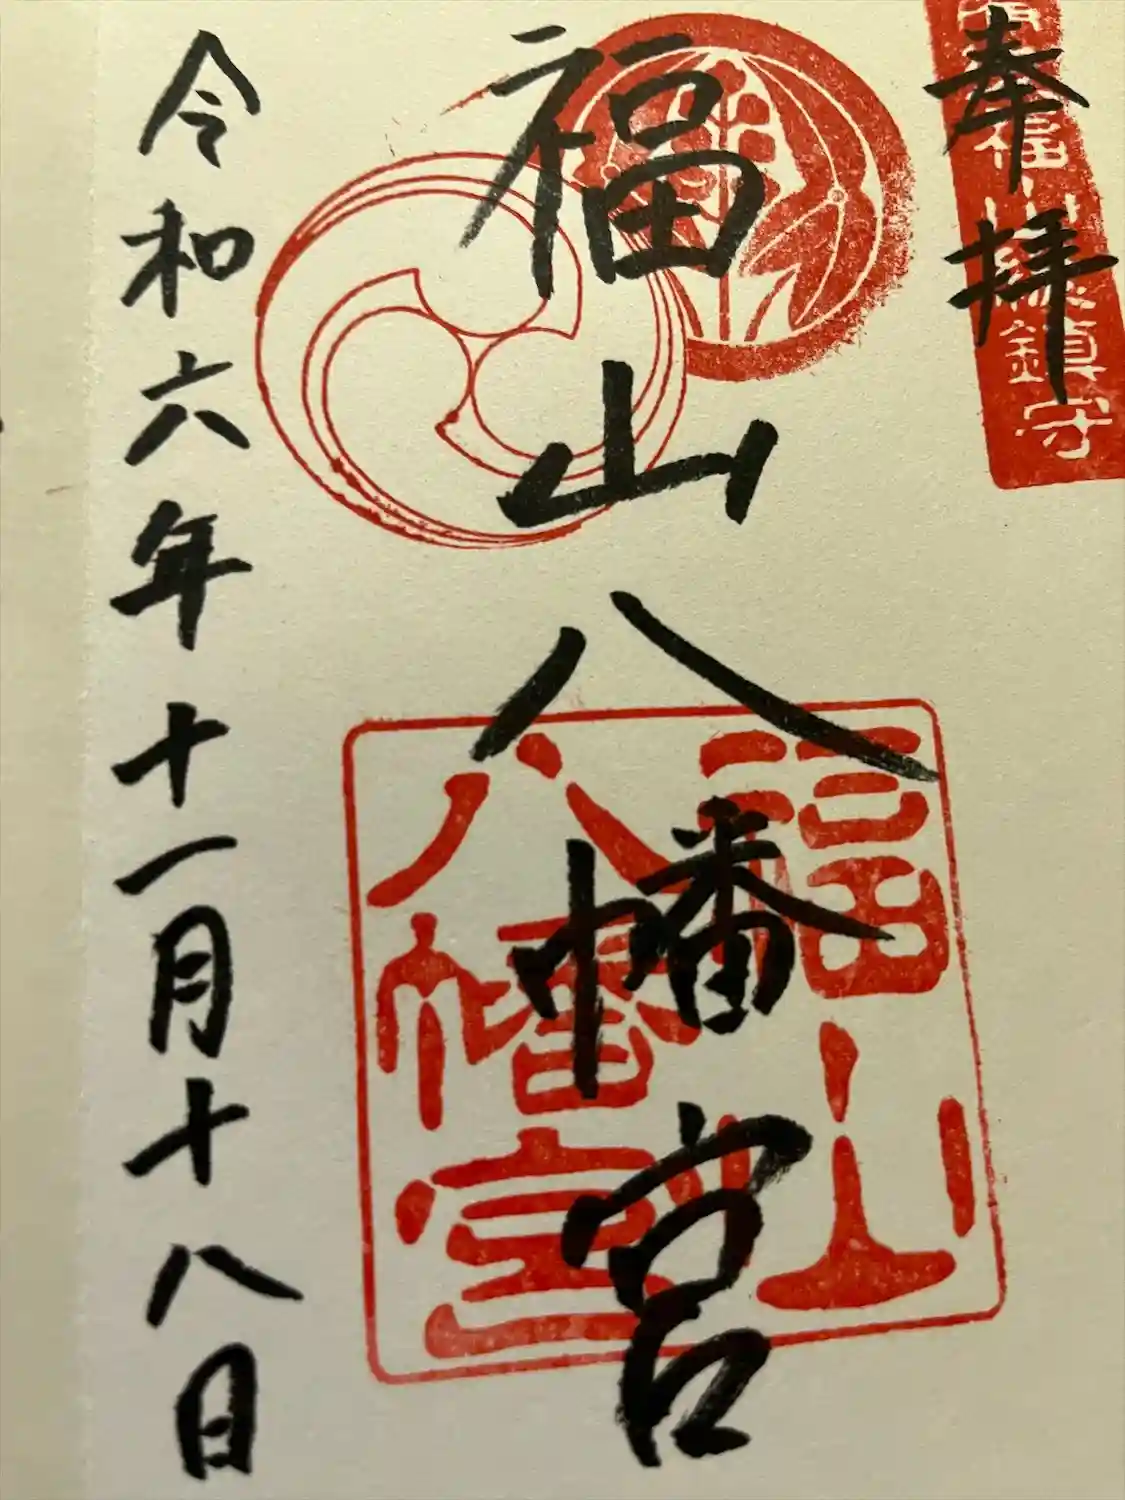 奉拝
福山城鎮守
福山八幡宮
福山
八幡宮
令和六年十一月十八日